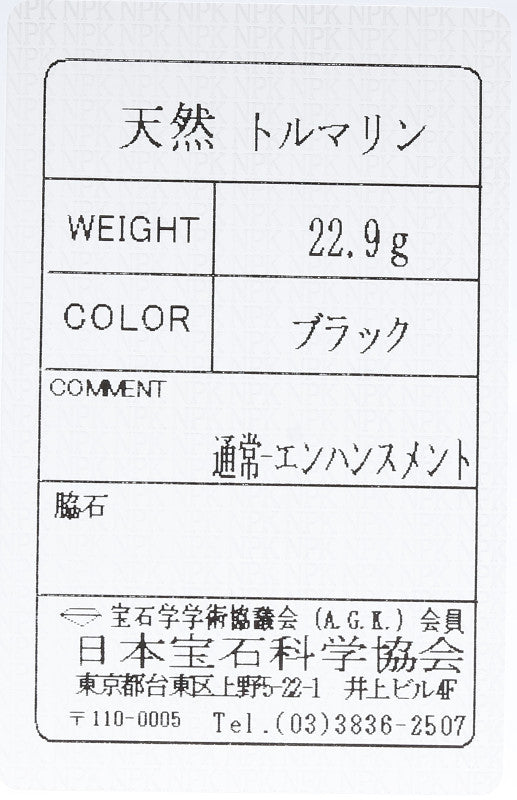 天然 トルマリン
WEIGHT 22.9g
COLOR ブラック
COMMENT
通常-エンハンスメント
脇石
宝石学学術協議会 (A.G.K.) 会員
日本宝石科学協会
東京都台東区上野5-22-1 井上ビル4F
〒110-0005 Tel.(03)3836-2507